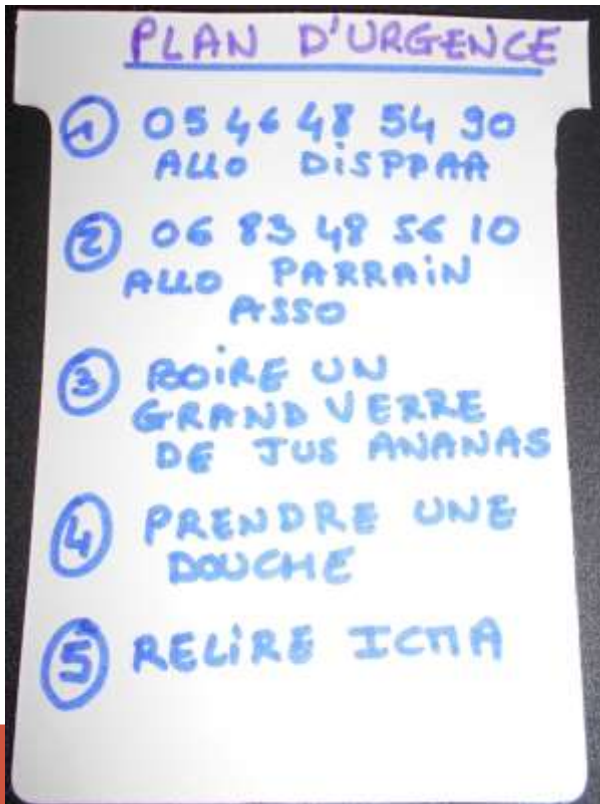 PLAN D'URGENCE
1 05 46 48 54 90
ALLO DiSPPAA
2 06 83 48 56 10
ALLO PARRAiN
ASSO
3 BOiRE UN
GRAND VERRE
DE JUS ANANAS
4 PRENDRE UNE
DOUCHE
5 RELiRE ICMA